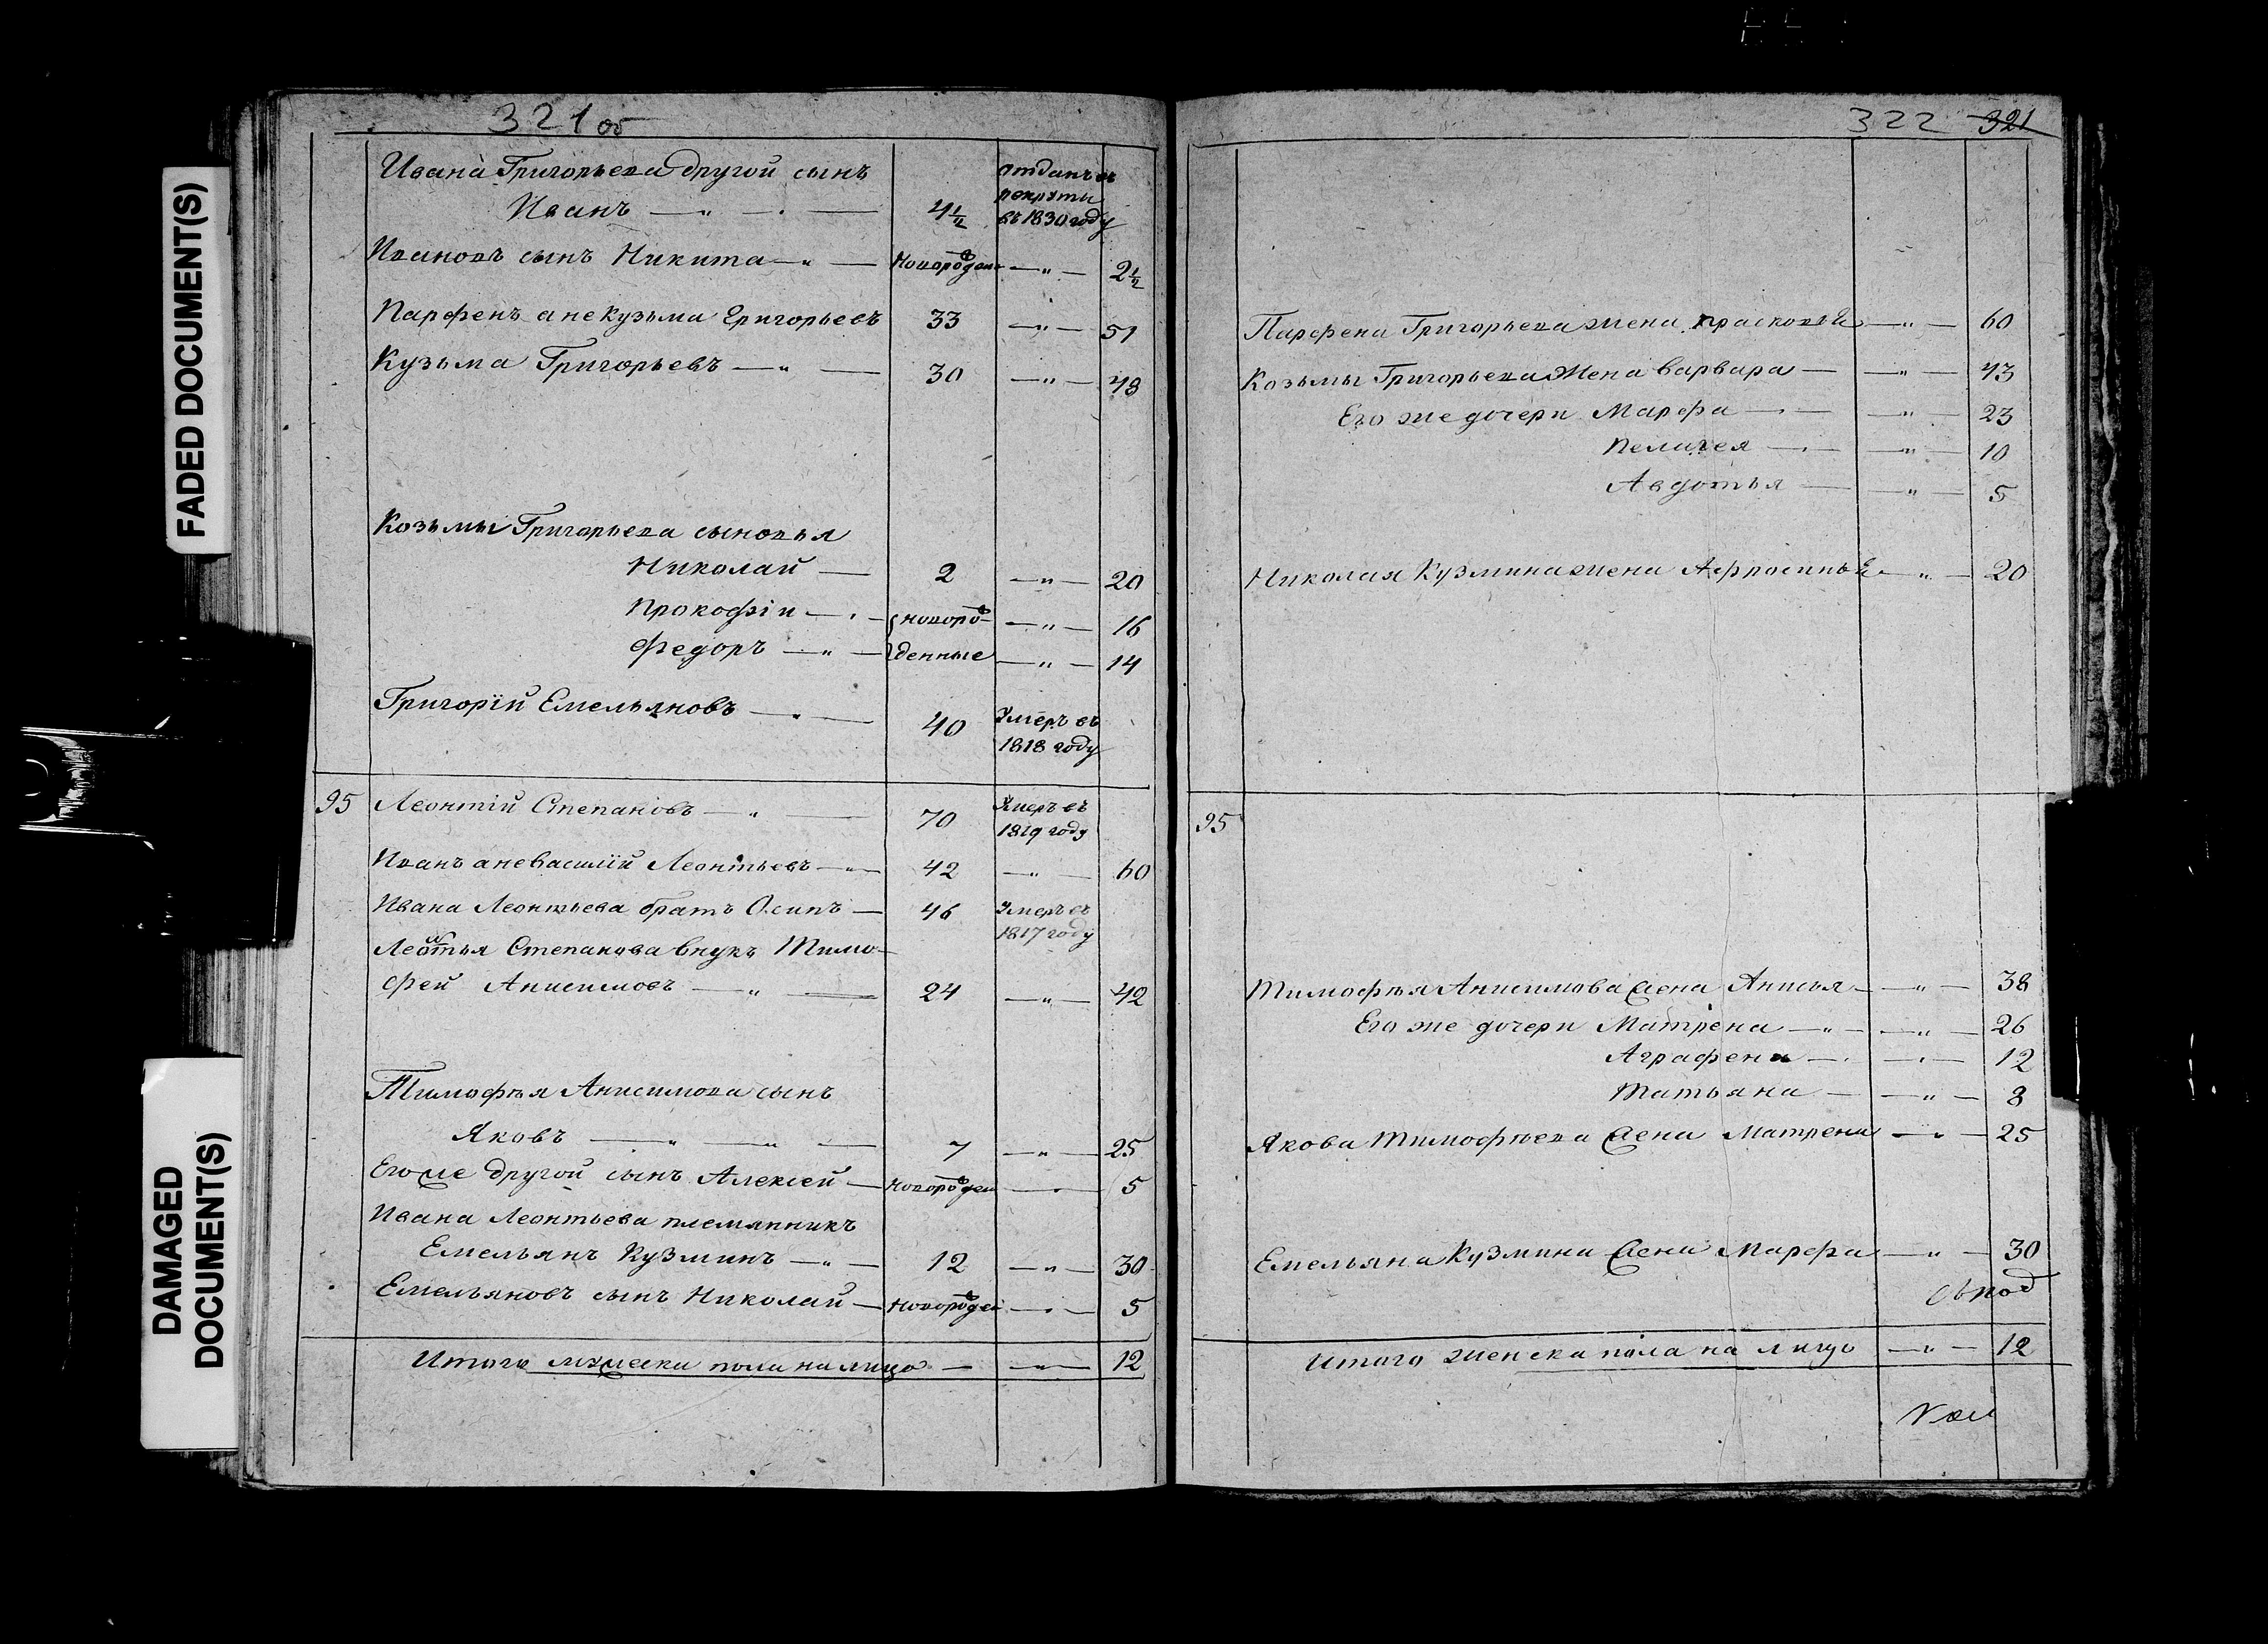 FADED DOCUMENT(S)
DAMAGED DOCUMENT(S)
321 об
Ивана Григорьева другой сынъ
Иванъ — " — 4½ отданъ въ рекруты въ 1830 году
Ивановъ сынъ Никита — " — новорожден — " — 2½
Парфенъ а не Кузьма Григорьевъ 33 — " — 51
Кузьма Григорьевъ — " — 30 — " — 48
Козьмы Григорьева сыновья
Николай — 2 — " — 20
Прокофiй — " — новоро- — " — 16
Федоръ — " — жденные — " — 14
Григорiй Емельяновъ — " — 40 Умеръ въ 1818 году
95 Леонтiй Степановъ — " — 70 Умеръ въ 1819 году
Иванъ а не Василiй Леонтьевъ — " — 42 — " — 60
Ивана Леонтьева братъ Осипъ — 46 Умеръ въ 1817 году
Леонтья Степанова внукъ Тимо-
фей Анисимовъ — " — 24 — " — 42
Тимофѣя Анисимова сынъ
Яковъ — " — " — 7 — " — 25
Его же другой сынъ Алексей — новорожден — " — 5
Ивана Леонтьева племянникъ
Емельянъ Кузминъ — " — 12 — " — 30
Емельяновъ сынъ Николай — новорожден — " — 5
Итого мужеска пола на лицо — — " — 12
322 321
Парфена Григорьева жена Прасковья — " — 60
Козьмы Григорьева жена Варвара — — " — 43
Его же дочери Марфа — " — — " — 23
Пелагея — " — — " — 10
Авдотья — — " — 5
Николая Кузмина жена Афросинья — " — 20
95
Тимофѣя Анисимова жена Анисья — — " — 38
Его же дочери Матрена — " — — " — 26
Аграфена — " — — " — 12
Татьяна — — " — 8
Якова Тимофѣева жена Матрена — " — 25
Емельяна Кузмина жена Марфа — " — 30
Итого женска пола на лицо — " — 12